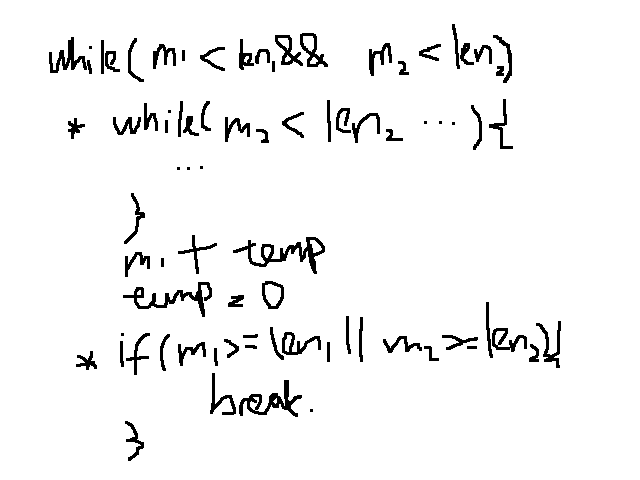 while(m₁ < len₁ && m₂ < len₂)
* while(m₂ < len₂ ...){
...
}
m₁ + temp
temp = 0
* if(m₁ >= len₁ || m₂ >= len₂){
break.
}